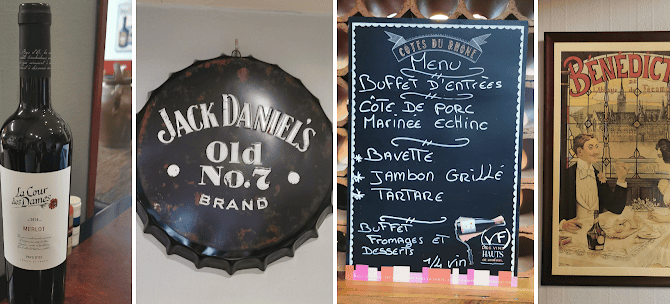 La Cour
des Dames
MERLOT
JACK DANIEL'S
Old
No. 7
BRAND
CÔTES DU RHÔNE
MENU
BUFFET D'ENTRÉES
CÔTE DE PORC
MARINÉE ECHINE
* BAVETTE
* JAMBON GRILLÉ
* TARTARE
BUFFET
FROMAGES ET
DESSERTS
1/4 vin
VF
HAUTS
BÉNÉDICT